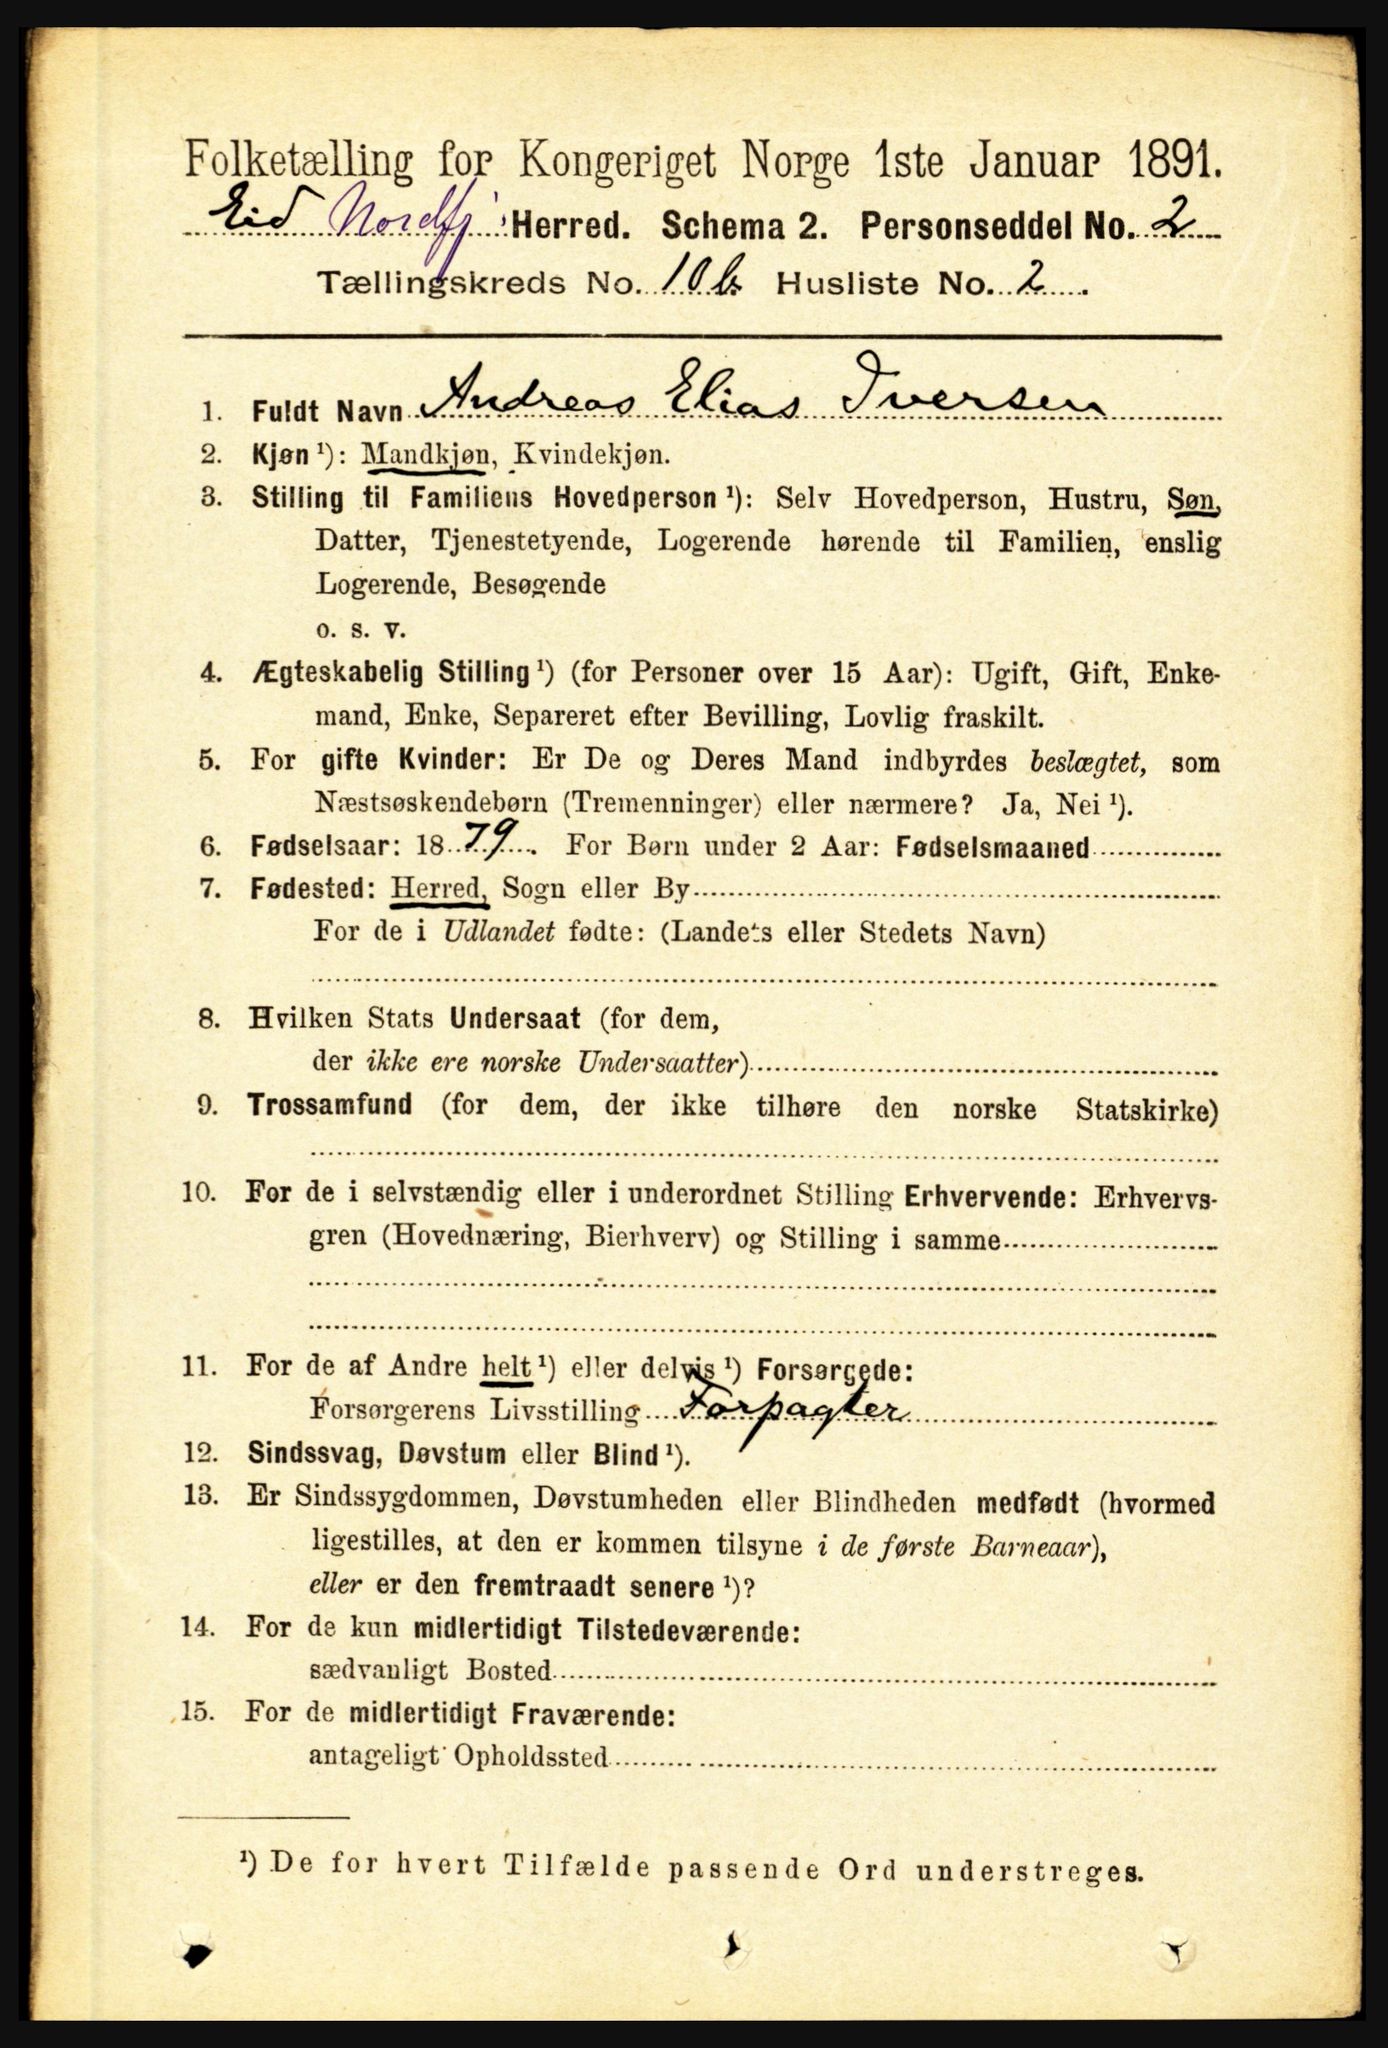 Folketælling for Kongeriget Norge 1ste Januar 1891.
Eid Nordfj. Herred. Schema 2. Personseddel No. 2
Tællingskreds No. 10 b. Husliste No. 2.
1. Fuldt Navn Andreas Elias Iversen
2. Kjøn ¹): Mandkjøn, Kvindekjøn.
3. Stilling til Familiens Hovedperson ¹): Selv Hovedperson, Hustru, Søn,
Datter, Tjenestetyende, Logerende hørende til Familien, enslig
Logerende, Besøgende
o. s. v.
4. Ægteskabelig Stilling ¹) (for Personer over 15 Aar): Ugift, Gift, Enke-
mand, Enke, Separeret efter Bevilling, Lovlig fraskilt.
5. For gifte Kvinder: Er De og Deres Mand indbyrdes beslægtet, som
Næstsøskendebørn (Tremenninger) eller nærmere? Ja, Nei ¹).
6. Fødselsaar: 1879. For Børn under 2 Aar: Fødselsmaaned
7. Fødested: Herred, Sogn eller By
For de i Udlandet fødte: (Landets eller Stedets Navn)
8. Hvilken Stats Undersaat (for dem,
der ikke ere norske Undersaatter)
9. Trossamfund (for dem, der ikke tilhøre den norske Statskirke)
10. For de i selvstændig eller i underordnet Stilling Erhvervende: Erhvervs-
gren (Hovednæring, Bierhverv) og Stilling i samme
11. For de af Andre helt ¹) eller delvis ¹) Forsørgede:
Forsørgerens Livsstilling Forpagter
12. Sindssvag, Døvstum eller Blind ¹).
13. Er Sindssygdommen, Døvstumheden eller Blindheden medfødt (hvormed
ligestilles, at den er kommen tilsyne i de første Barneaar),
eller er den fremtraadt senere ¹)?
14. For de kun midlertidigt Tilstedeværende:
sædvanligt Bosted
15. For de midlertidigt Fraværende:
antageligt Opholdssted
¹) De for hvert Tilfælde passende Ord understreges.